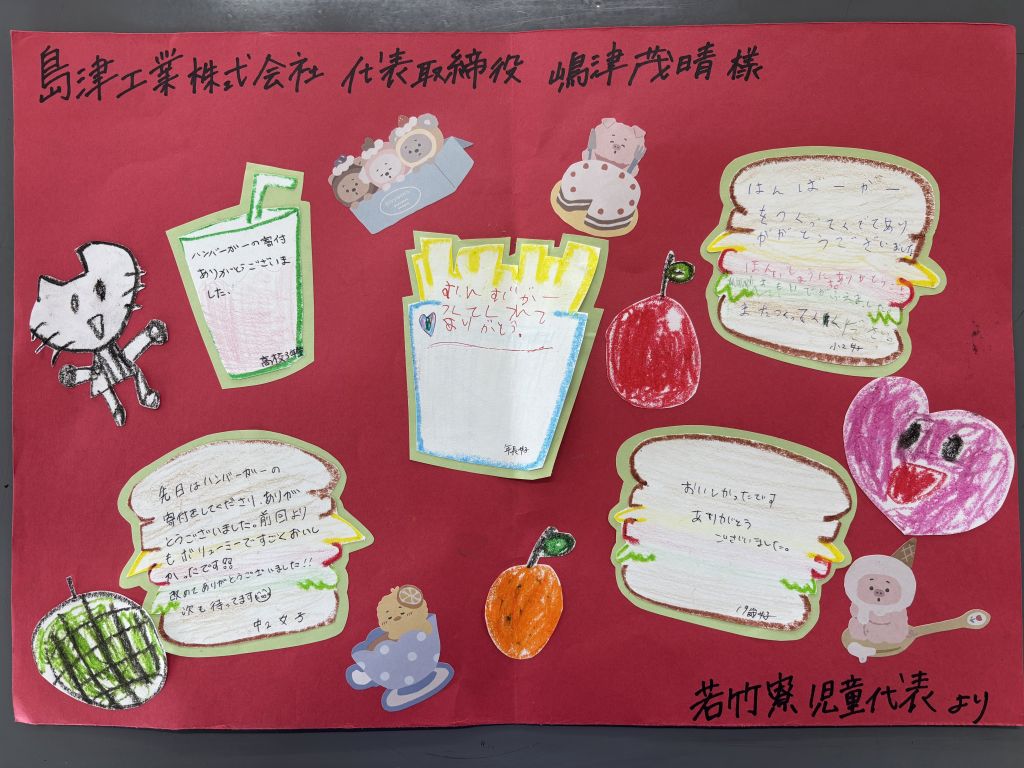 島津工業株式会社 代表取締役 嶋津茂晴 様
ハンバーガーの寄付
ありがとうございま
した。
つくてしくれて
ありがとう。
年長 女子
はんばーがー
をつくってくでてあり
ががとうございました
またつくってください。
小2 女子
先日はハンバーガーの
寄付をしてくださり、ありが
とうございました。前回より
もボリューミーですごくおいし
かったです!!
改めてありがとうございました!!
次も待ってます
中2 女子
おいしかったです
ありがとう
ございました。
19歳 女子
若竹寮 児童代表 より